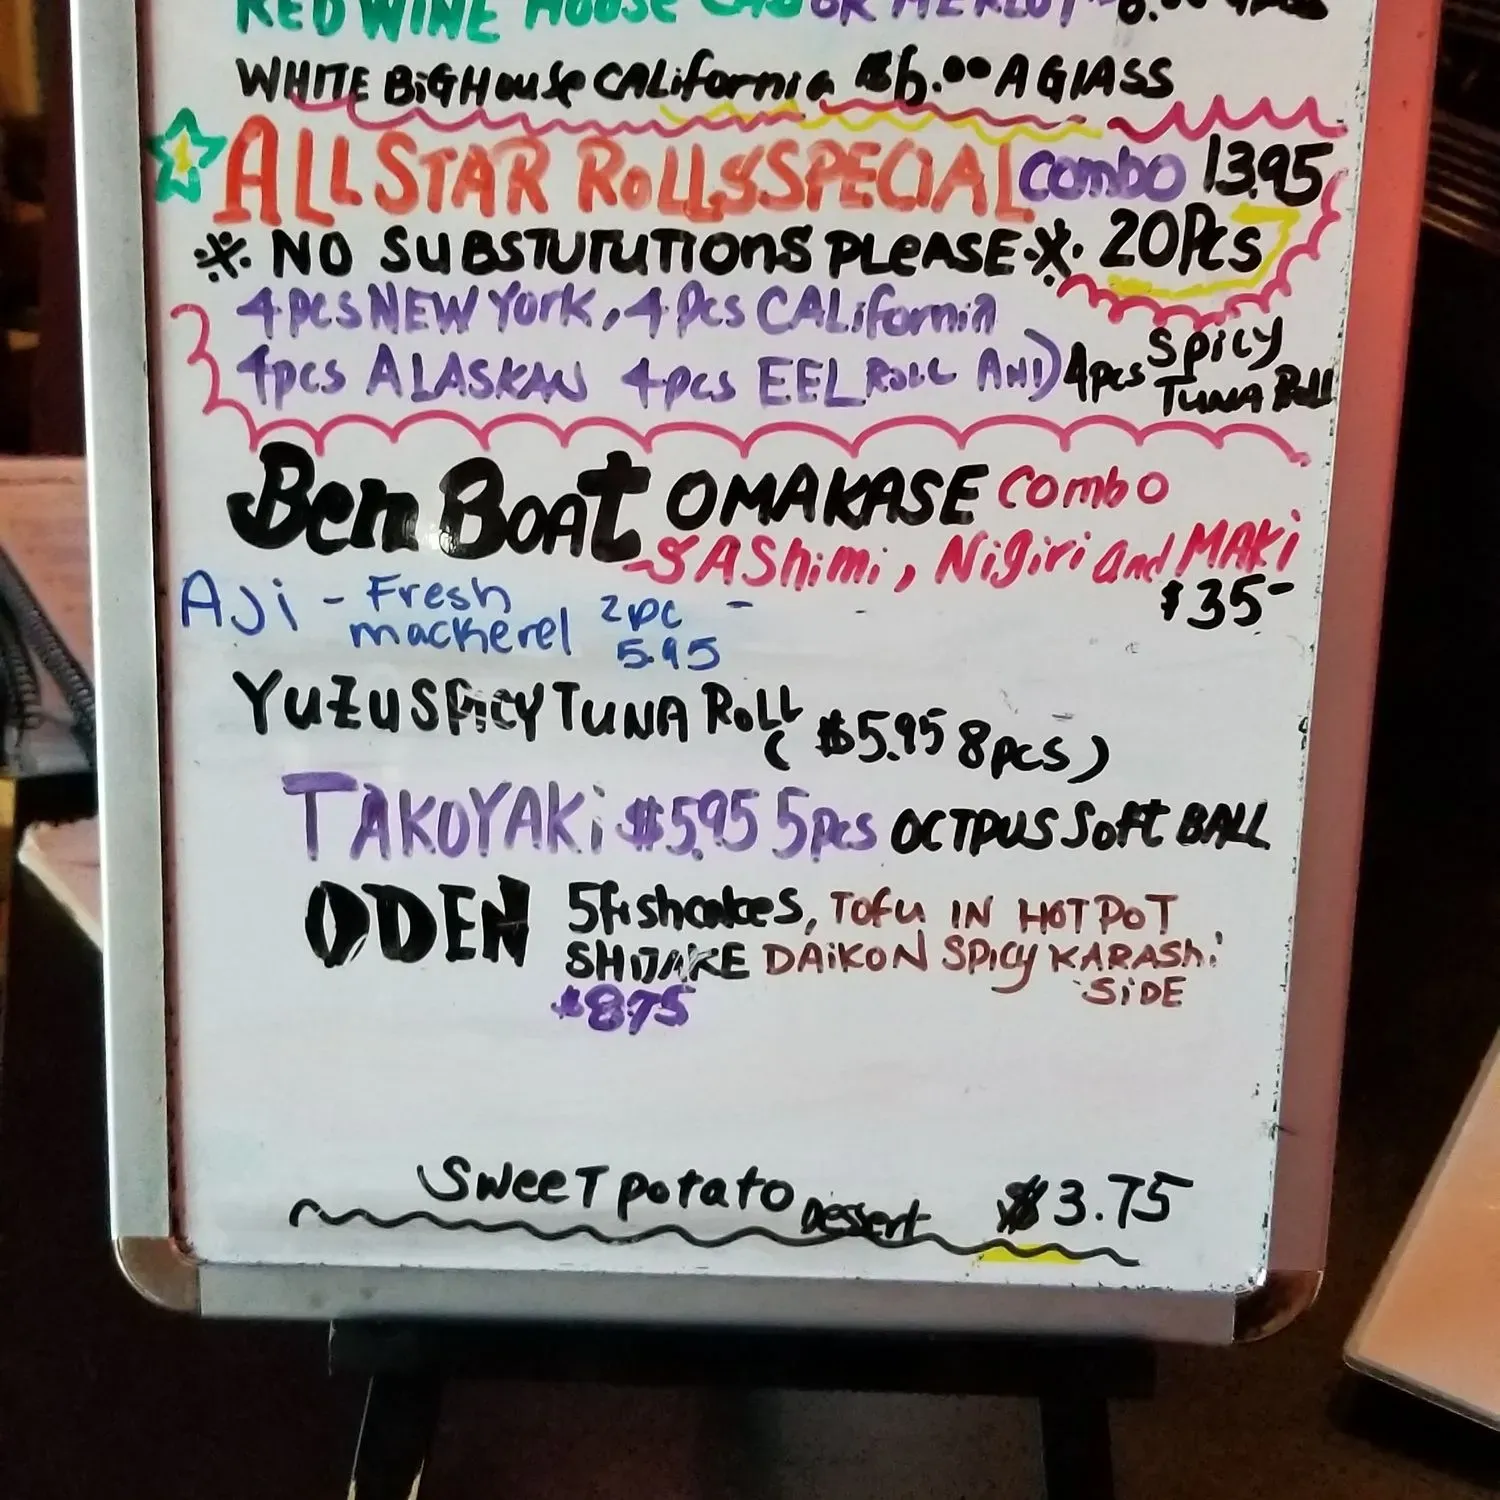 RED WINE HOUSE CAB OR MERLOT
WHITE BIGHouse CALifornia $6.00 A GlASS
ALL STAR RoLLS SPECIAL combo 13.95
※ NO SUBSTUTUTIONS PLEASE ※. 20Pcs
4pcs NEW York, 4 Pcs CALifornia
4pcs ALASKAN 4pcs EEL RoLL AND 4pcs Spicy TUNA Roll
Ben BOAt OMAKASE Combo
SAShimi, Nigiri and MAKi
$35-
Aji - Fresh mackerel 2pc - 5.95
YuzU SPicY TUNA RoLL ($5.95 8pcs)
TAKOYAKi $5.95 5pcs OCTPUS Soft BALL
ODEN 5Fishcakes, TOFU IN HOT POT
SHITAKE DAiKON SPICY KARASHi SiDE
$8.75
SweeT potato Dessert $3.75